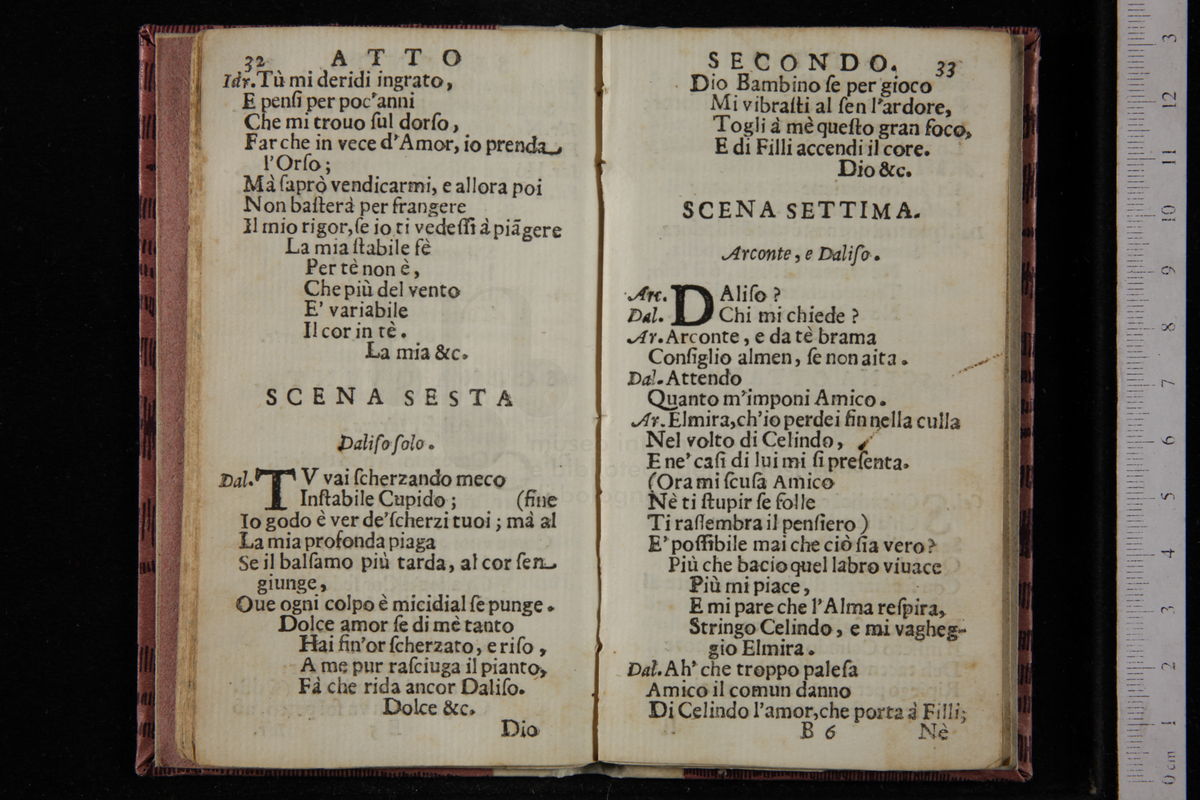 32 ATTO
Idr. Tù mi deridi ingrato,
E penſi per poc'anni
Che mi trouo ſul dorſo,
Far che in vece d'Amor, io prenda
l'Orſo;
Mà ſaprò vendicarmi, e allora poi
Non baſterà per frangere
Il mio rigor, ſe io ti vedeſſi à piãgere
La mia ſtabile fè
Per tè non è,
Che più del vento
E' variabile
Il cor in tè.
La mia &c.
SCENA SESTA
Daliſo ſolo.
Dal. TV vai ſcherzando meco
Inſtabile Cupido; (fine
Io godo è ver de'ſcherzi tuoi; mà al
La mia profonda piaga
Se il balſamo più tarda, al cor ſen
giunge,
Oue ogni colpo è micidial ſe punge.
Dolce amor ſe di mè tanto
Hai fin'or ſcherzato, e riſo,
A me pur raſciuga il pianto,
Fà che rida ancor Daliſo.
Dolce &c.
Dio
SECONDO. 33
Dio Bambino ſe per gioco
Mi vibraſti al ſen l'ardore,
Togli à mè queſto gran foco,
E di Filli accendi il core.
Dio &c.
SCENA SETTIMA.
Arconte, e Daliſo.
Arc. DAliſo?
Dal. Chi mi chiede?
Ar. Arconte, e da tè brama
Conſiglio almen, ſe non aita.
Dal. Attendo
Quanto m'imponi Amico.
Ar. Elmira, ch'io perdei fin nella culla
Nel volto di Celindo,
E ne' caſi di lui mi ſi preſenta.
(Ora mi ſcuſa Amico
Nè ti ſtupir ſe folle
Ti raſſembra il penſiero)
E' poſſibile mai che ciò ſia vero?
Più che bacio quel labro viuace
Più mi piace,
E mi pare che l'Alma reſpira,
Stringo Celindo, e mi vagheg-
gio Elmira.
Dal. Ah' che troppo paleſa
Amico il comun danno
Di Celindo l'amor, che porta à Filli;
B 6 Nè